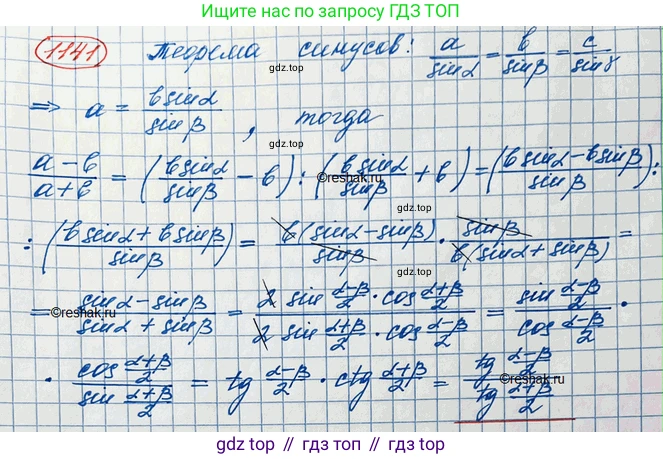 Ищите нас по запросу ГДЗ ТОП
1141 Теорема синусов: a/sinα = b/sinβ = c/sinγ
gdz.top
⇒ a = b sinα/sinβ, тогда
(a-b)/(a+b) = (b sinα/sinβ - b) : (b sinα/sinβ + b) = ((b sinα - b sinβ)/sinβ) :
©reshak.ru
gdz.top
: ((b sinα + b sinβ)/sinβ) = b(sinα - sinβ)/sinβ · sinβ/(b(sinα + sinβ)) =
gdz.top
= (sinα - sinβ)/(sinα + sinβ) = (2 sin (α-β)/2 · cos (α+β)/2)/(2 sin (α+β)/2 · cos (α-β)/2) = (sin (α-β)/2)/(cos (α-β)/2) ·
©reshak.ru
· (cos (α+β)/2)/(sin (α+β)/2) = tg (α-β)/2 · ctg (α+β)/2 = (tg (α-β)/2)/(tg (α+β)/2)
©reshak.ru
gdz.top // гдз.топ // гдз топ